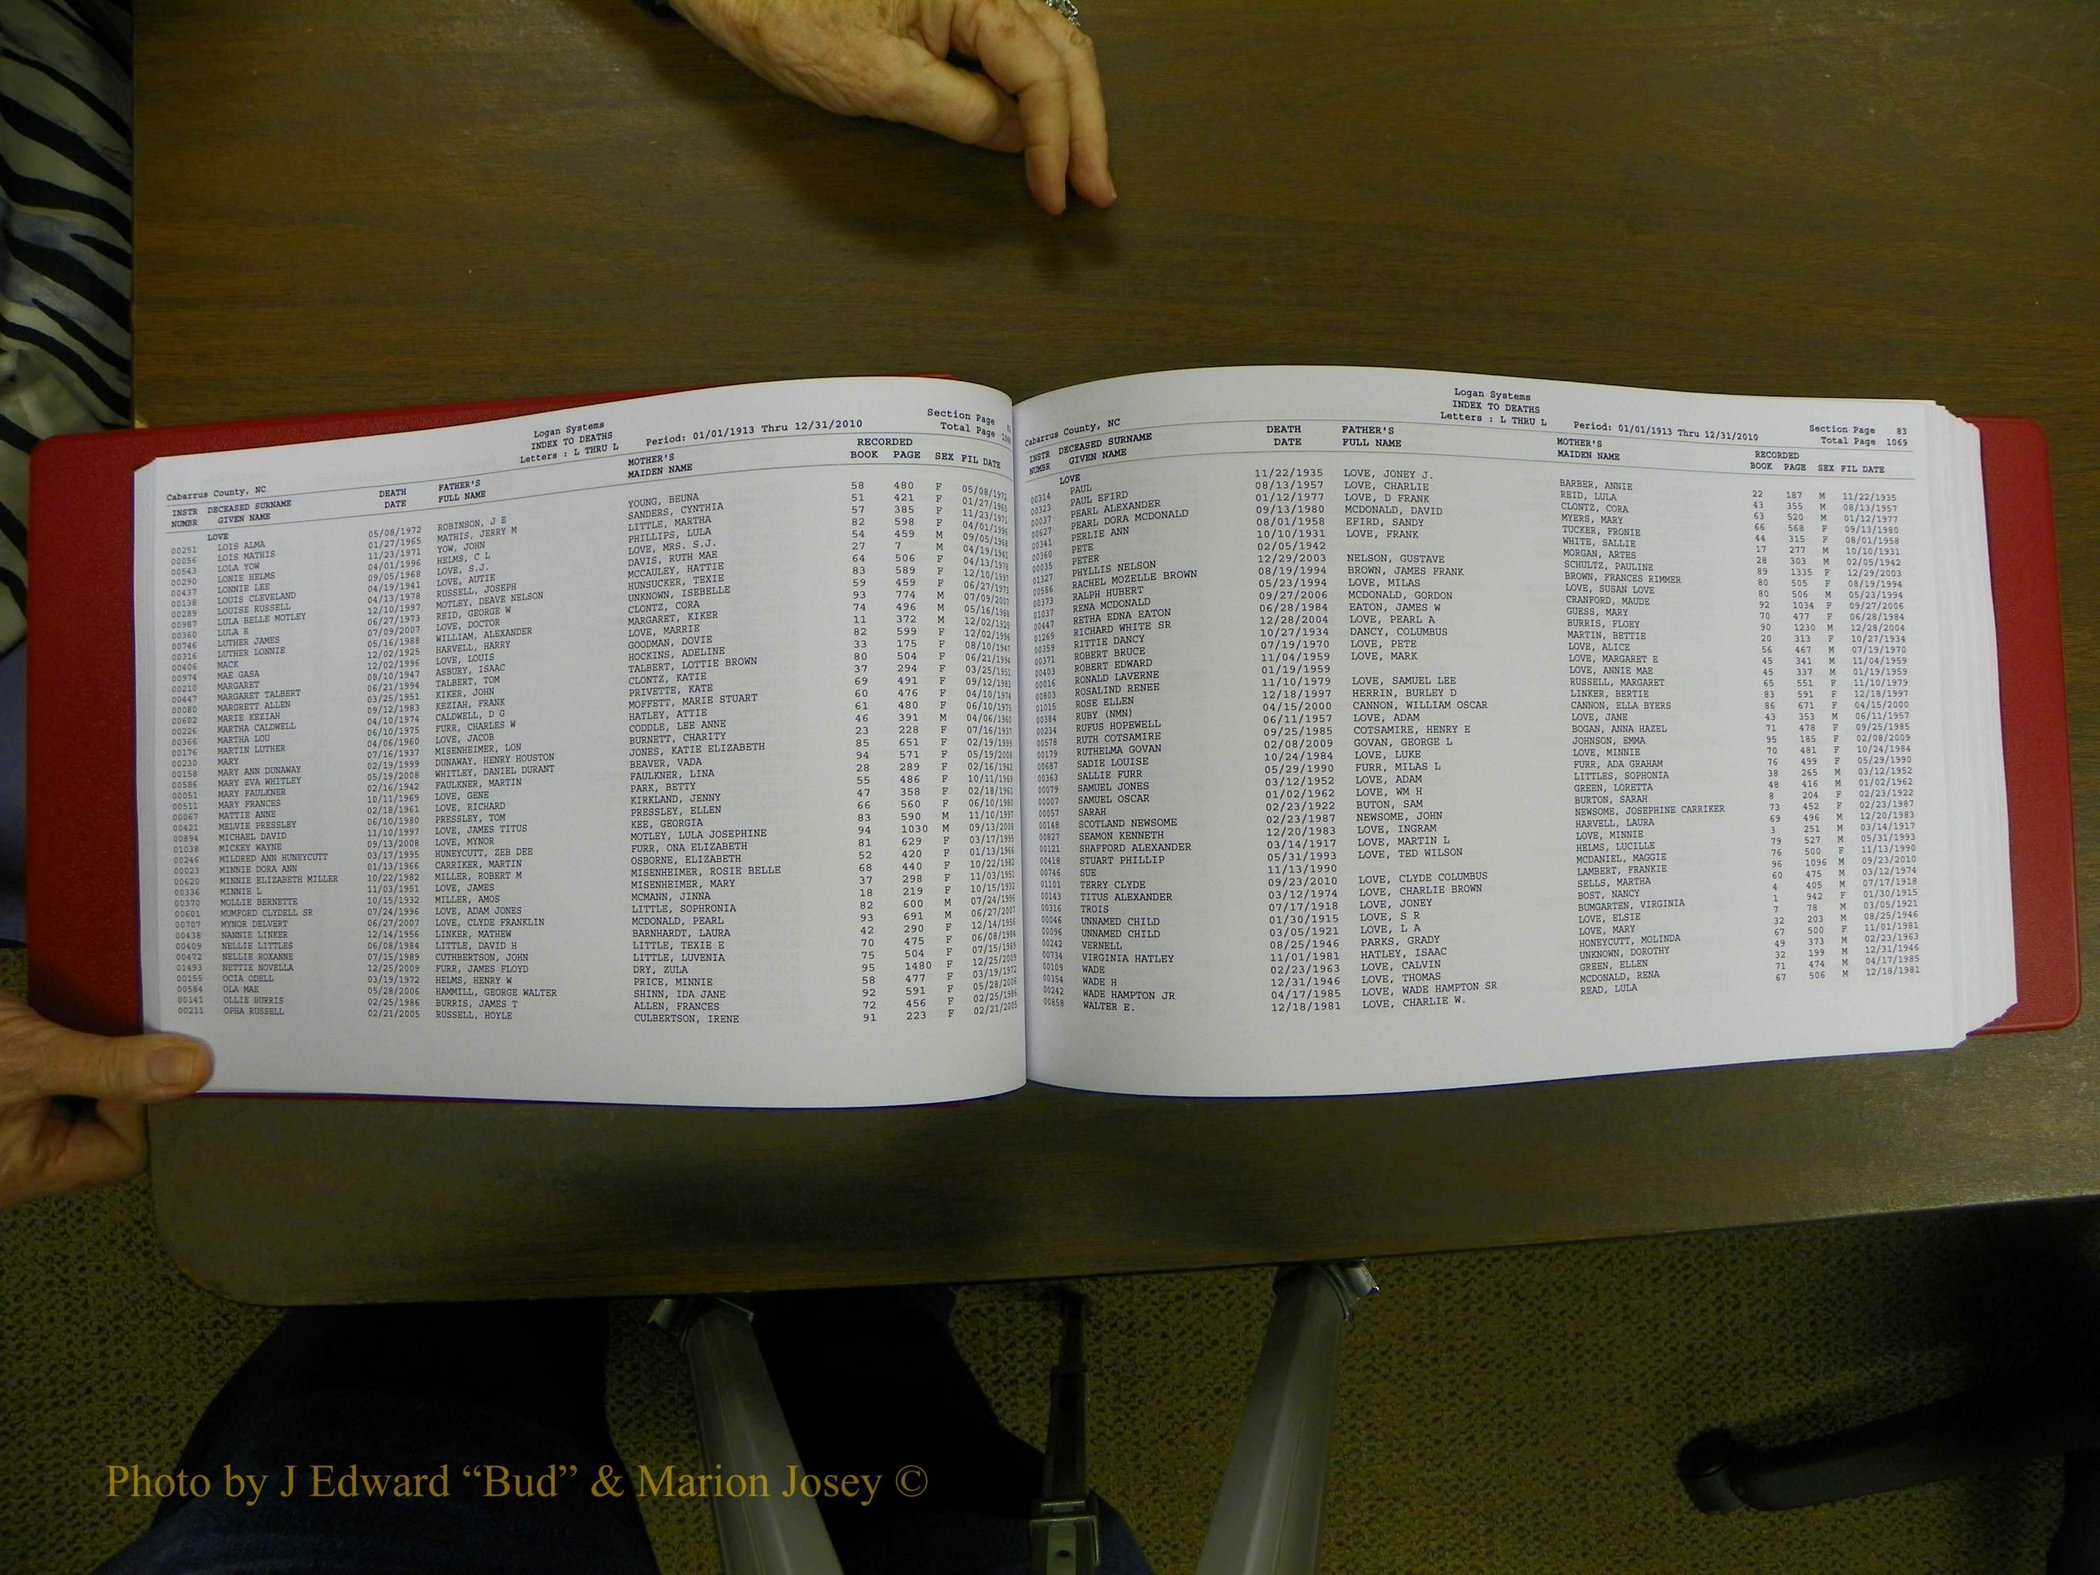 Logan Systems
INDEX TO DEATHS
Section Page 82
Cabarrus County, NC Letters : L THRU L Period: 01/01/1913 Thru 12/31/2010 Total Page
INSTR DECEASED SURNAME DEATH FATHER'S MOTHER'S RECORDED
NUMBR GIVEN NAME DATE FULL NAME MAIDEN NAME BOOK PAGE SEX FIL DATE
LOVE
00251 LOIS ALMA 05/08/1972 ROBINSON, J E YOUNG, BEUNA 58 480 F 05/08/1972
00056 LOIS MATHIS 01/27/1965 MATHIS, JERRY M SANDERS, CYNTHIA 51 421 F 01/27/1965
00543 LOLA YOW 11/23/1971 YOW, JOHN LITTLE, MARTHA 57 385 F 11/23/1971
00290 LONIE HELMS 04/01/1996 HELMS, C L PHILLIPS, LULA 82 598 F 04/01/1996
00437 LONNIE LEE 09/05/1968 LOVE, S.J. LOVE, MRS. S.J. 54 459 M 09/05/1968
00138 LOUIS CLEVELAND 04/19/1941 LOVE, AUTIE DAVIS, RUTH MAE 27 7 M 04/19/1941
00289 LOUISE RUSSELL 04/13/1978 RUSSELL, JOSEPH MCCAULEY, HATTIE 64 506 F 04/13/1978
00987 LULA BELLE MOTLEY 12/10/1997 MOTLEY, DEAVE NELSON HUNSUCKER, TEXIE 83 589 F 12/10/1997
00360 LULA R 06/27/1973 REID, GEORGE W UNKNOWN, ISEBELLE 59 459 F 06/27/1973
00746 LUTHER JAMES 07/09/2007 LOVE, DOCTOR CLONTZ, CORA 93 774 M 07/09/2007
00316 LUTHER LONNIE 05/16/1988 WILLIAM, ALEXANDER MARGARET, KIKER 74 496 M 05/16/1988
00406 MACK 12/02/1925 HARVELL, HARRY LOVE, MARRIE 11 372 M 12/02/1925
00974 MAE GASA 12/02/1996 LOVE, LOUIS GOODMAN, DOVIE 82 599 F 12/02/1996
00210 MARGARET 08/10/1947 ASBURY, ISAAC HOCKINS, ADELINE 33 175 F 08/10/1947
00447 MARGARET TALBERT 06/21/1994 TALBERT, TOM TALBERT, LOTTIE BROWN 80 504 F 06/21/1994
00080 MARGRETT ALLEN 03/25/1951 KIKER, JOHN CLONTZ, KATIE 37 294 F 03/25/1951
00602 MARIE KEZIAH 09/12/1983 KEZIAH, FRANK PRIVETTE, KATE 69 491 F 09/12/1983
00226 MARTHA CALDWELL 04/10/1974 CALDWELL, D G MOFFETT, MARIE STUART 60 476 F 04/10/1974
00366 MARTHA LOU 06/10/1975 FURR, CHARLES W HATLEY, ATTIE 61 480 F 06/10/1975
00176 MARTIN LUTHER 04/06/1960 LOVE, JACOB CODDLE, LEE ANNE 46 391 M 04/06/1960
00230 MARY 07/16/1937 MISENHEIMER, LON BURNETT, CHARITY 23 228 F 07/16/1937
00158 MARY ANN DUNAWAY 02/19/1999 DUNAWAY, HENRY HOUSTON JONES, KATIE ELIZABETH 85 651 F 02/19/1999
00586 MARY EVA WHITLEY 05/19/2008 WHITLEY, DANIEL DURANT BEAVER, VADA 94 571 F 05/19/2008
00051 MARY FAULKNER 02/16/1942 FAULKNER, MARTIN FAULKNER, LINA 28 289 F 02/16/1942
00511 MARY FRANCES 10/11/1969 LOVE, GENE PARK, BETTY 55 486 F 10/11/1969
00067 MATTIE ANNE 02/18/1961 LOVE, RICHARD KIRKLAND, JENNY 47 358 F 02/18/1961
00421 MELVIE PRESSLEY 06/10/1980 PRESSLEY, TOM PRESSLEY, ELLEN 66 560 F 06/10/1980
00894 MICHAEL DAVID 11/10/1997 LOVE, JAMES TITUS KEE, GEORGIA 83 590 M 11/10/1997
01038 MICKEY WAYNE 09/13/2008 LOVE, MYNOR MOTLEY, LULA JOSEPHINE 94 1030 M 09/13/2008
00246 MILDRED ANN HUNEYCUTT 03/17/1995 HUNEYCUTT, ZEB DEE FURR, ONA ELIZABETH 81 629 F 03/17/1995
00023 MINNIE DORA ANN 01/13/1966 CARRIKER, MARTIN OSBORNE, ELIZABETH 52 420 F 01/13/1966
00620 MINNIE ELIZABETH MILLER 10/22/1982 MILLER, ROBERT M MISENHEIMER, ROSIE BELLE 68 440 F 10/22/1982
00336 MINNIE L 11/03/1951 LOVE, JAMES MISENHEIMER, MARY 37 298 F 11/03/1951
00370 MOLLIE BERNETTE 10/15/1932 MILLER, AMOS MCMANN, JINNA 18 219 F 10/15/1932
00601 MUMFORD CLYDELL SR 07/24/1996 LOVE, ADAM JONES LITTLE, SOPHRONIA 82 600 M 07/24/1996
00707 MYNOR DELVERT 06/27/2007 LOVE, CLYDE FRANKLIN MCDONALD, PEARL 93 691 M 06/27/2007
00438 NANNIE LINKER 12/14/1956 LINKER, MATHEW BARNHARDT, LAURA 42 290 F 12/14/1956
00409 NELLIE LITTLES 06/08/1984 LITTLE, DAVID H LITTLE, TEXIE E 70 475 F 06/08/1984
00472 NELLIE ROXANNE 07/15/1989 CUTHBERTSON, JOHN LITTLE, LUVENIA 75 504 F 07/15/1989
01493 NETTIE NOVELLA 12/25/2009 FURR, JAMES FLOYD DRY, ZULA 95 1480 F 12/25/2009
00155 OCIA ODELL 03/19/1972 HELMS, HENRY W PRICE, MINNIE 58 477 F 03/19/1972
00584 OLA MAE 05/28/2006 HAMMILL, GEORGE WALTER SHINN, IDA JANE 92 591 F 05/28/2006
00141 OLLIE BURRIS 02/25/1986 BURRIS, JAMES T ALLEN, FRANCES 72 456 F 02/25/1986
00211 OPHA RUSSELL 02/21/2005 RUSSELL, HOYLE CULBERTSON, IRENE 91 223 F 02/21/2005
Logan Systems
INDEX TO DEATHS
Section Page 83
Cabarrus County, NC Letters : L THRU L Period: 01/01/1913 Thru 12/31/2010 Total Page 1069
INSTR DECEASED SURNAME DEATH FATHER'S MOTHER'S RECORDED
NUMBR GIVEN NAME DATE FULL NAME MAIDEN NAME BOOK PAGE SEX FIL DATE
LOVE
00314 PAUL 11/22/1935 LOVE, JONEY J. BARBER, ANNIE 22 187 M 11/22/1935
00323 PAUL EFIRD 08/13/1957 LOVE, CHARLIE REID, LULA 43 355 M 08/13/1957
00037 PEARL ALEXANDER 01/12/1977 LOVE, D FRANK CLONTZ, CORA 63 520 M 01/12/1977
00627 PEARL DORA MCDONALD 09/13/1980 MCDONALD, DAVID MYERS, MARY 66 568 F 09/13/1980
00341 PERLIE ANN 08/01/1958 EFIRD, SANDY TUCKER, FRONIE 44 315 F 08/01/1958
00360 PETE 10/10/1931 LOVE, FRANK WHITE, SALLIE 17 277 M 10/10/1931
00035 PETER 02/05/1942 MORGAN, ARTES 28 303 M 02/05/1942
01327 PHYLLIS NELSON 12/29/2003 NELSON, GUSTAVE SCHULTZ, PAULINE 89 1335 F 12/29/2003
00586 RACHEL MOZELLE BROWN 08/19/1994 BROWN, JAMES FRANK BROWN, FRANCES RIMMER 80 505 F 08/19/1994
00373 RALPH HUBERT 05/23/1994 LOVE, MILAS LOVE, SUSAN LOVE 80 506 M 05/23/1994
01037 RENA MCDONALD 09/27/2006 MCDONALD, GORDON CRANFORD, MAUDE 92 1034 F 09/27/2006
00447 RETHA EDNA EATON 06/28/1984 EATON, JAMES W GUESS, MARY 70 477 F 06/28/1984
01269 RICHARD WHITE SR 12/28/2004 LOVE, PEARL A BURRIS, FLOEY 90 1230 M 12/28/2004
00359 RITTIE DANCY 10/27/1934 DANCY, COLUMBUS MARTIN, BETTIE 20 313 F 10/27/1934
00371 ROBERT BRUCE 07/19/1970 LOVE, PETE LOVE, ALICE 56 467 M 07/19/1970
00403 ROBERT EDWARD 11/04/1959 LOVE, MARK LOVE, MARGARET E 45 341 M 11/04/1959
00016 RONALD LAVERNE 01/19/1959 LOVE, ANNIE MAE 45 337 M 01/19/1959
00803 ROSALIND RENEE 11/10/1979 LOVE, SAMUEL LEE RUSSELL, MARGARET 65 551 F 11/10/1979
01015 ROSE ELLEN 12/18/1997 HERRIN, BURLEY D LINKER, BERTIE 83 591 F 12/18/1997
00384 RUBY (NMN) 04/15/2000 CANNON, WILLIAM OSCAR CANNON, ELLA BYERS 86 671 F 04/15/2000
00234 RUFUS HOPEWELL 06/11/1957 LOVE, ADAM LOVE, JANE 43 353 M 06/11/1957
00578 RUTH COTSAMIRE 09/25/1985 COTSAMIRE, HENRY E BOGAN, ANNA HAZEL 71 478 F 09/25/1985
00179 RUTHELMA GOVAN 02/08/2009 GOVAN, GEORGE L JOHNSON, EMMA 95 185 F 02/08/2009
00687 SADIE LOUISE 10/24/1984 LOVE, LUKE LOVE, MINNIE 70 481 F 10/24/1984
00363 SALLIE FURR 05/29/1990 FURR, MILAS L FURR, ADA GRAHAM 76 499 F 05/29/1990
00079 SAMUEL JONES 03/12/1952 LOVE, ADAM LITTLES, SOPHONIA 38 265 M 03/12/1952
00007 SAMUEL OSCAR 01/02/1962 LOVE, WM H GREEN, LORETTA 48 416 M 01/02/1962
00057 SARAH 02/23/1922 BUTON, SAM BURTON, SARAH 8 204 F 02/23/1922
00148 SCOTLAND NEWSOME 02/23/1987 NEWSOME, JOHN NEWSOME, JOSEPHINE CARRIKER 73 452 F 02/23/1987
00827 SEAMON KENNETH 12/20/1983 LOVE, INGRAM HARVELL, LAURA 69 496 M 12/20/1983
00121 SHAFFORD ALEXANDER 03/14/1917 LOVE, MARTIN L LOVE, MINNIE 3 251 M 03/14/1917
00418 STUART PHILLIP 05/31/1993 LOVE, TED WILSON HELMS, LUCILLE 79 527 M 05/31/1993
00746 SUE 11/13/1990 MCDANIEL, MAGGIE 76 500 F 11/13/1990
01101 TERRY CLYDE 09/23/2010 LOVE, CLYDE COLUMBUS LAMBERT, FRANKIE 96 1096 M 09/23/2010
00143 TITUS ALEXANDER 03/12/1974 LOVE, CHARLIE BROWN SELLS, MARTHA 60 475 M 03/12/1974
00316 TROIS 07/17/1918 LOVE, JONEY BOST, NANCY 4 405 M 07/17/1918
00046 UNNAMED CHILD 01/30/1915 LOVE, S R BUMGARTEN, VIRGINIA 1 942 F 01/30/1915
00096 UNNAMED CHILD 03/05/1921 LOVE, L A LOVE, ELSIE 7 78 M 03/05/1921
00242 VERNELL 08/25/1946 PARKS, GRADY LOVE, MARY 32 203 M 08/25/1946
00734 VIRGINIA HATLEY 11/01/1981 HATLEY, ISAAC HONEYCUTT, MOLINDA 67 500 F 11/01/1981
00109 WADE 02/23/1963 LOVE, CALVIN UNKNOWN, DOROTHY 49 373 M 02/23/1963
00354 WADE H 12/31/1946 LOVE, THOMAS GREEN, ELLEN 32 199 M 12/31/1946
00242 WADE HAMPTON JR 04/17/1985 LOVE, WADE HAMPTON SR MCDONALD, RENA 71 474 M 04/17/1985
00858 WALTER E. 12/18/1981 LOVE, CHARLIE W. READ, LULA 67 506 M 12/18/1981
Photo by J Edward “Bud” & Marion Josey ©